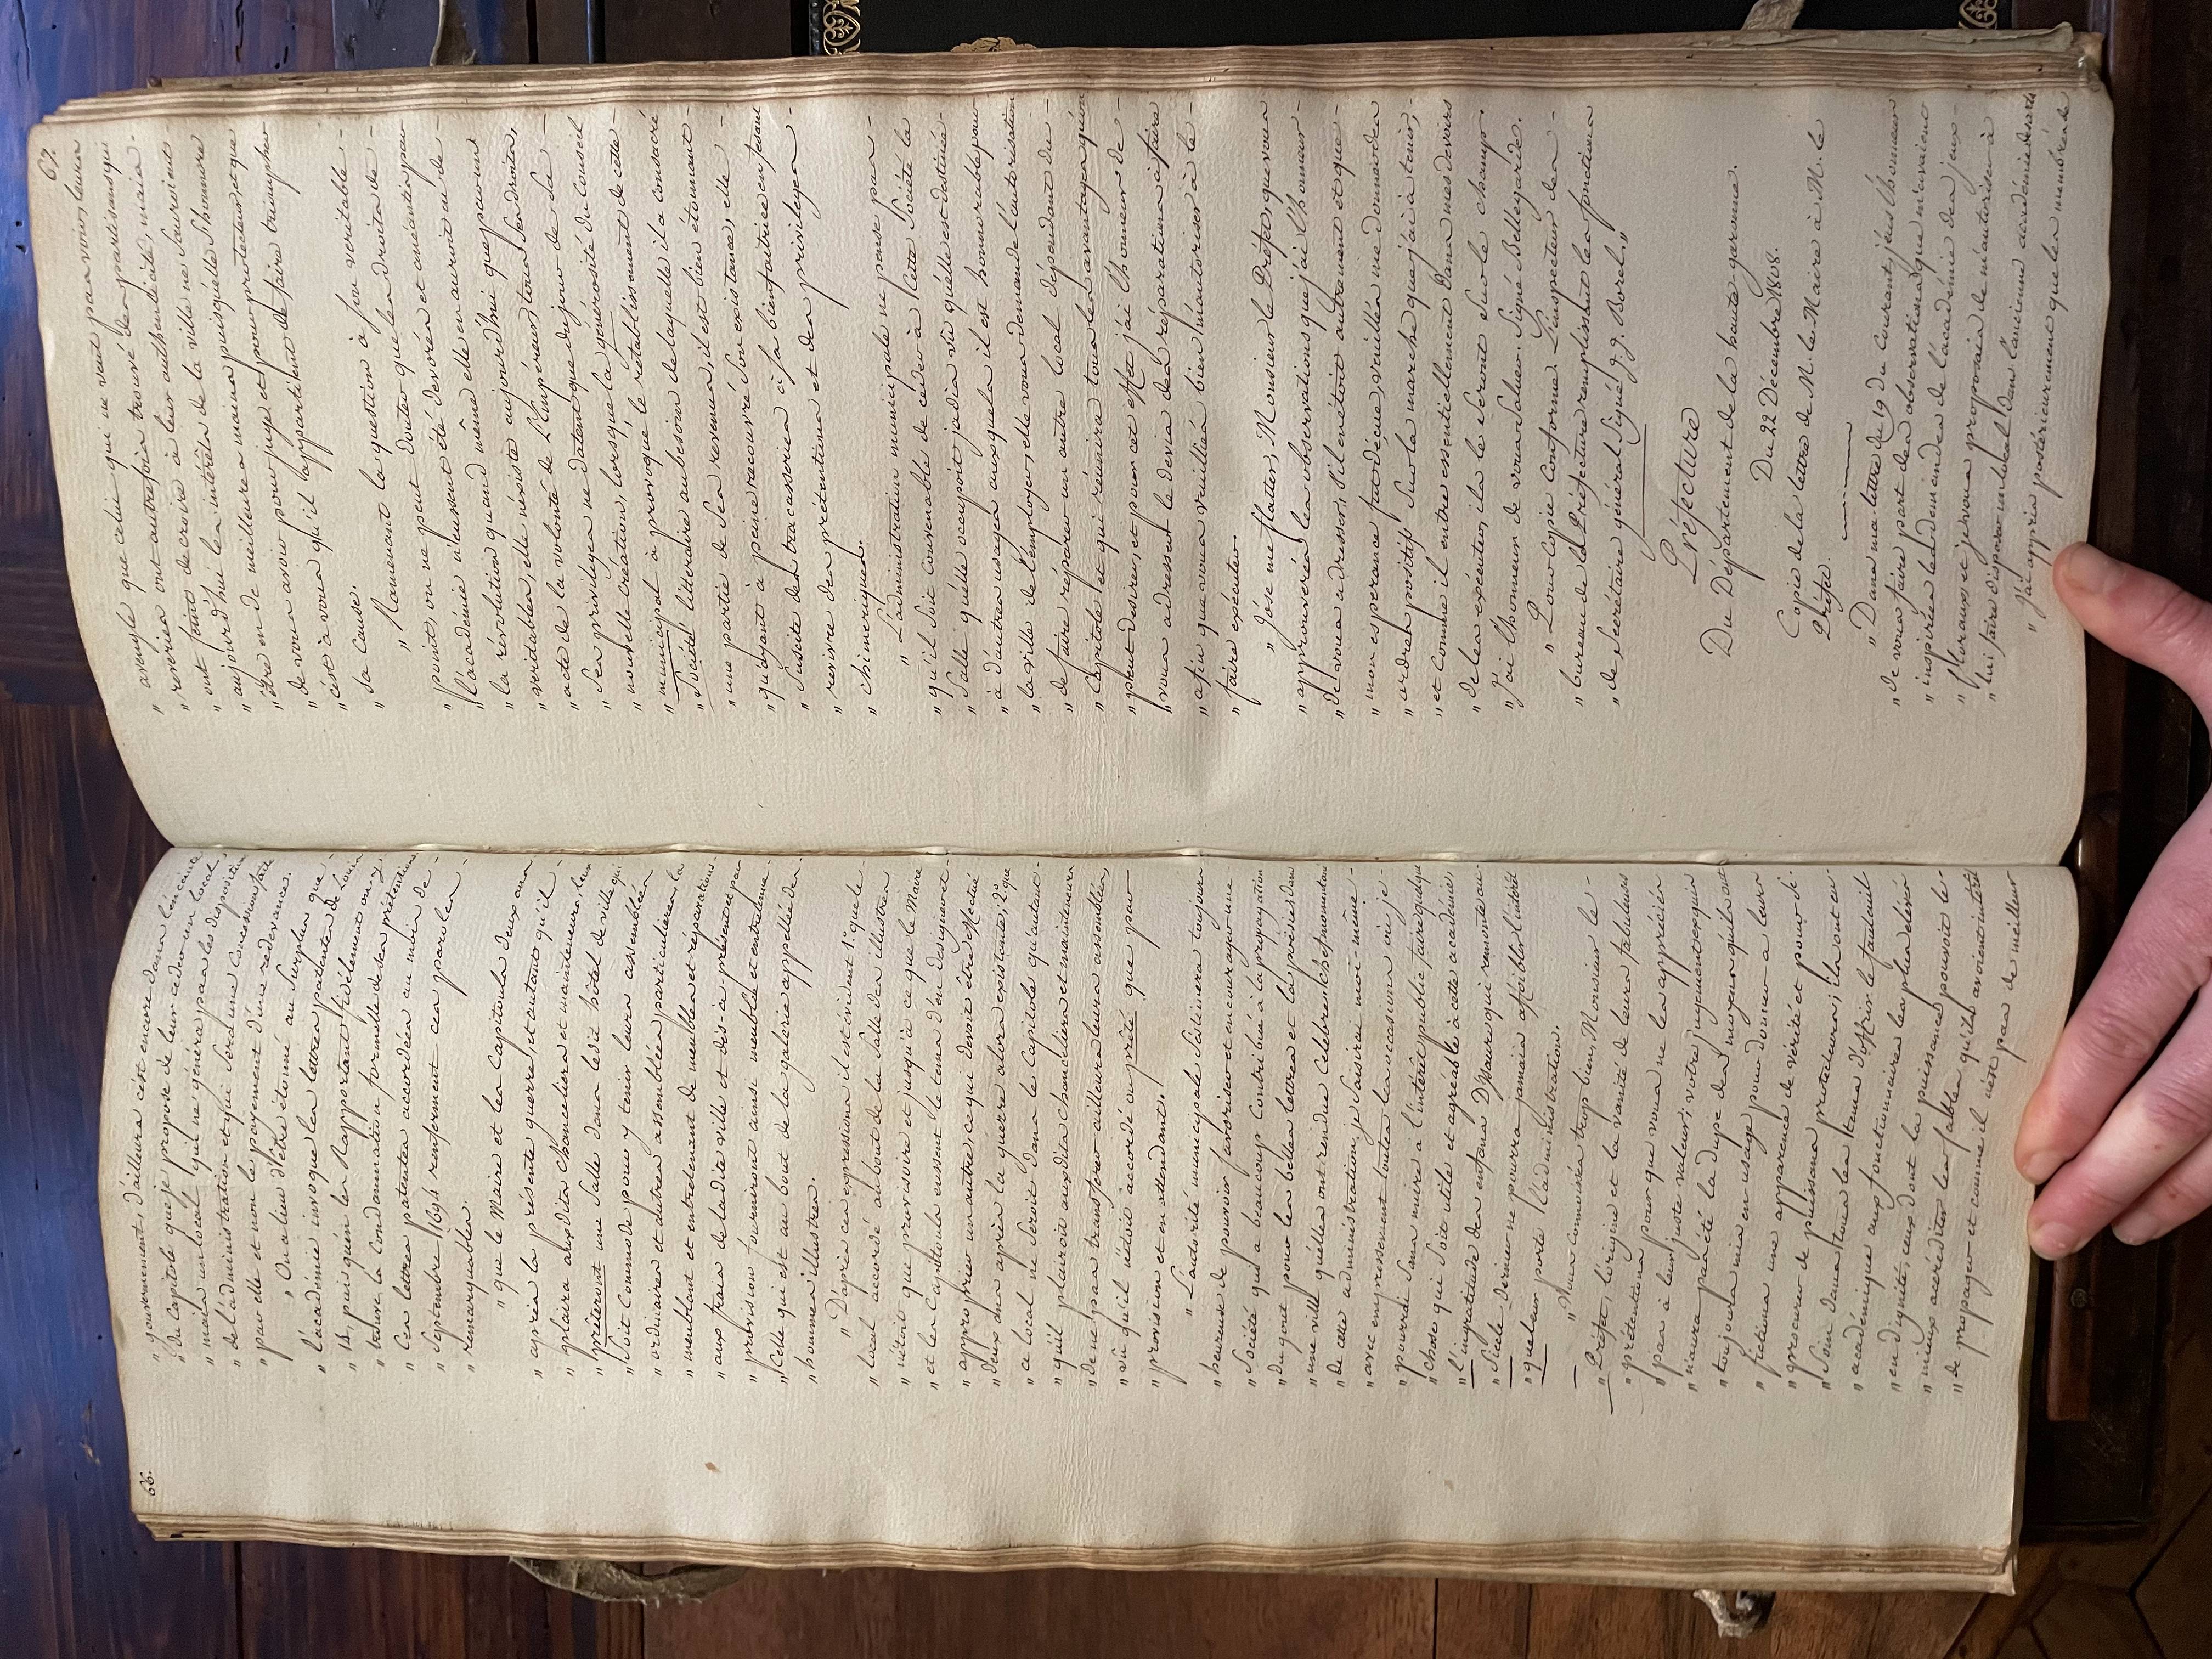 66.
" gouvernement, d'ailleurs c'est encore dans l'enceinte
" du Capitole que je propose de leur ceder un local,
" mais un local qui ne gênera pas les dispositions
" de l'administration et qui sera une Concession faite
" par elle et non le payement d'une redevance.
" On a lieu d'être étonné au Surplus que
" l'académie invoque les lettres patentes de Louis
" 14, puisqu'en les Rapportant fidèlement on y
" trouve la Condamnation formelle de ses prétentions
" Ces lettres patentes accordées au mois de
" Septembre 1694 renferment ces paroles
" remarquables.
" que le Maire et les Capitouls deux ans
" après la présente guerre, et autant qu'il
" plaira auxdits Chanceliers et mainteneurs, leur
" prêteront une Salle dans ledit hôtel de ville qui
" Soit Commode pour y tenir leurs assemblées
" ordinaires et autres assemblées particulières, la
" meublant et entretenant de meubles et réparations
" aux frais de ladite ville et dis-à présent et par
" provision fourniront ainsi meublée et entretenue
" Celle qui est au bout de la galerie appellée des
" hommes illustres.
" D'après ces expressions il est évident 1.° que le
" local accordé au bout de la Salle des illustres
" n'étoit que provisoire et jusqu'à ce que le Maire
" et les Capitouls eussent le tems d'en désigner et
" approprier un autre, ce qui devoit être effectué
" deux ans après la guerre alors existante, 2.° que
" ce local ne Seroit dans le Capitole qu'autant
" qu'il plairoit auxdits chanceliers et mainteneurs
" de ne pas transférer ailleurs leurs assemblées,
" vu qu'il n'étoit accordé ou prêté que par
" provision et en attendant.
" L'autorité municipale S'estimera toujours
" heureuse de pouvoir favoriser et encourager une
" Société qui a beaucoup Contribué à la propagation
" du gout pour les belles lettres et la poësie dans
" une ville qu'elles ont rendue célèbre. Chef momentané
" de cette administration, je Saisirai moi-même
" avec empressement toutes les occasions où je
" pourrai Sans nuire à l'intérêt public faire quelque
" chose qui Soit utile et agréable à cette académie,
" l'ingratitude des enfans D'Isaure qui remonte au
" Siècle dernier ne pourra jamais affoiblir l'intérêt
" que leur porte l'administration.
" Vous connoissés trop bien, Monsieur le
" Préfet, l'origine et la vanité de leurs fabuleuses
" prétentions pour que vous ne les appréciés
" pas à leur juste valeur; votre jugement exquis
" n'aura pas été la dupe des moyens qu'ils ont
" toujours mis en usage pour donner à leurs
" fictions une apparence de vérité et pour se
" procurer de puissans protecteurs; ils ont eu
" Soin dans tous les tems d'offrir le fauteuil
" académique aux fonctionnaires les plus élevés
" en dignité, ceux dont la puissance pouvoit le
" mieux acréditer les fables qu'ils avoient intérêt
" de propager et comme il n'est pas de meilleur
67.
" aveugle que celui qui ne veut pas voir, leurs
" reveries ont autrefois trouvé des partisans qui
" ont feint de croire à leur authenticité, mais
" aujourd'hui les intérêts de la ville ne Sauroient
" être en de meilleures mains puisqu'elle s'honnore
" de vous avoir pour juge et pour protecteur, et que
" c'est à vous qu'il appartient de faire triompher
" sa cause.
" Ramenant la question à son veritable
" point, on ne peut douter que les droits de
" l'académie n'eussent été dévorés et anéantis par
" la révolution quand même elle en auroit eu de
" veritables, elle n'existe aujourd'hui que par un
" acte de la volonté de L'Empéreur, tous Ses droits,
" Ses privileges ne datent que du jour de Sa
" nouvelle création, lorsque la générosité du Conseil
" municipal a provoqué le rétablissement de cette
" Société littéraire au besoin de laquelle il a consacré
" une partie de Ses revenus, il est bien étonnant
" qu'ayant à peine recouvré Son existence, elle
" Suscite des tracasseries à sa bienfaitrice en faisant
" revivre des prétentions et des privileges
" chimeriques.
" L'administration municipale ne pense pas
" qu'il Soit Convenable de ceder à cette Société la
" Salle qu'elle occupoit jadis vû qu'elle est destinée
" à d'autres usages auxquels il est honnorable pour
" la ville de l'employer, elle vous demande l'autorisation
" de faire réparer un autre local dépendant du
" Capitole et qui réunira tous les avantages qu'on
" peut desirer, et pour cet effet j'ai l'honneur de
" vous adresser le devis des réparations à faire
" afin que vous veuilliés bien m'autoriser à le
" faire exécuter.
" J'ôse me flatter, Monsieur le Préfet, que vous
" approuverés les observations que j'ai l'honneur
" de vous adresser, s'il en étoit autrement et que
" mon esperance fut déçue, veuillés me donner des
" ordres positifs Sur la marche que j'ai à tenir,
" et Comme il entre essentiellement dans mes devoirs
" de les exécuter, ils le Seront Sur le champ.
" J'ai l'honneur de vous Saluer. Signé Bellegarde.
" Pour Copie Conforme. L'inspecteur des
" bureaux de la Préfecture remplissant les fonctions
" de Secrétaire général Signé J. J. Borel."
Préfecture
Du Département de la haute garonne.
Du 22 Décembre 1808.
Copie de la lettre de M. le Maire à M. le
Préfet.
" Dans ma lettre du 19 du Courant, j'eus l'honneur
" de vous faire part des observations que m'avaient
" inspirées les demandes de l'académie des jeux
" floraux et je vous proposais de m'autoriser à
" lui faire disposer un local dans l'ancienne académie des arts
" J'ai appris postérieurement que les membres de